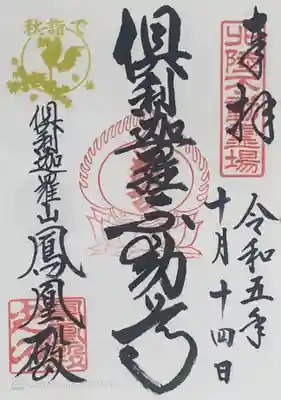 奉拝
北陸不動霊場
令和五年
十月十四日
倶利迦羅不動尊
秋詣で
倶利迦羅山鳳凰殿